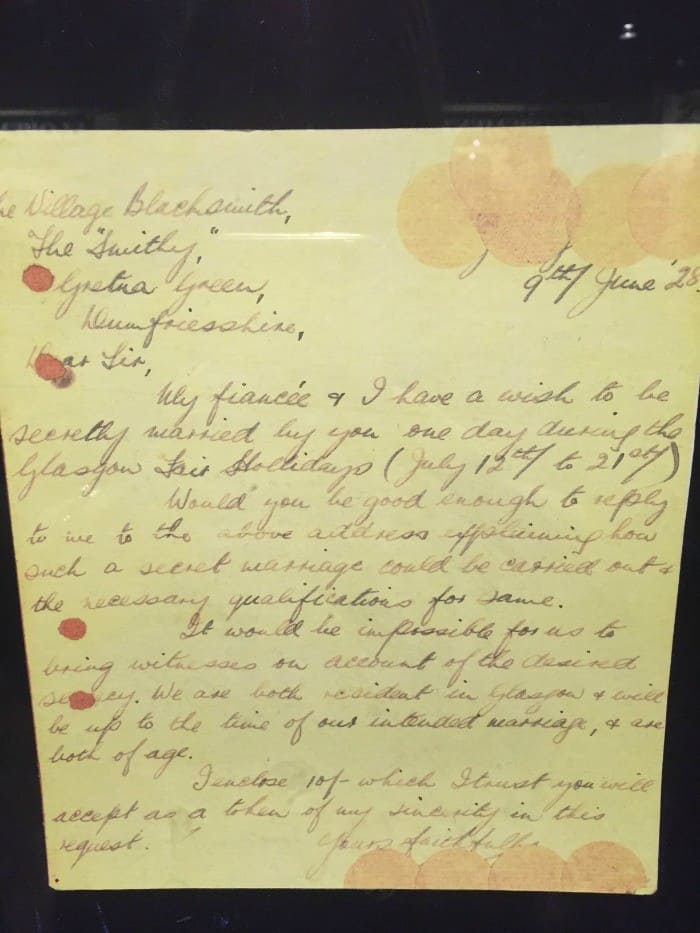 The Village Blacksmith,
The "Smithy,"
Gretna Green,
9th June '28.
Dumfriesshire,
Dear Sir,
My fiancée & I have a wish to be
secretly married by you one day during the
Glasgow Fair Hollidays (July 12th to 21st)
Would you be good enough to reply
to me to the above address explaining how
such a secret marriage could be carried out &
the necessary qualifications for same.
It would be impossible for us to
bring witnesses on account of the desired
secrecy. We are both resident in Glasgow & will
be up to the time of our intended marriage, & are
both of age.
I enclose 10/- which I trust you will
accept as a token of my sincerity in this
request.
Yours faithfully